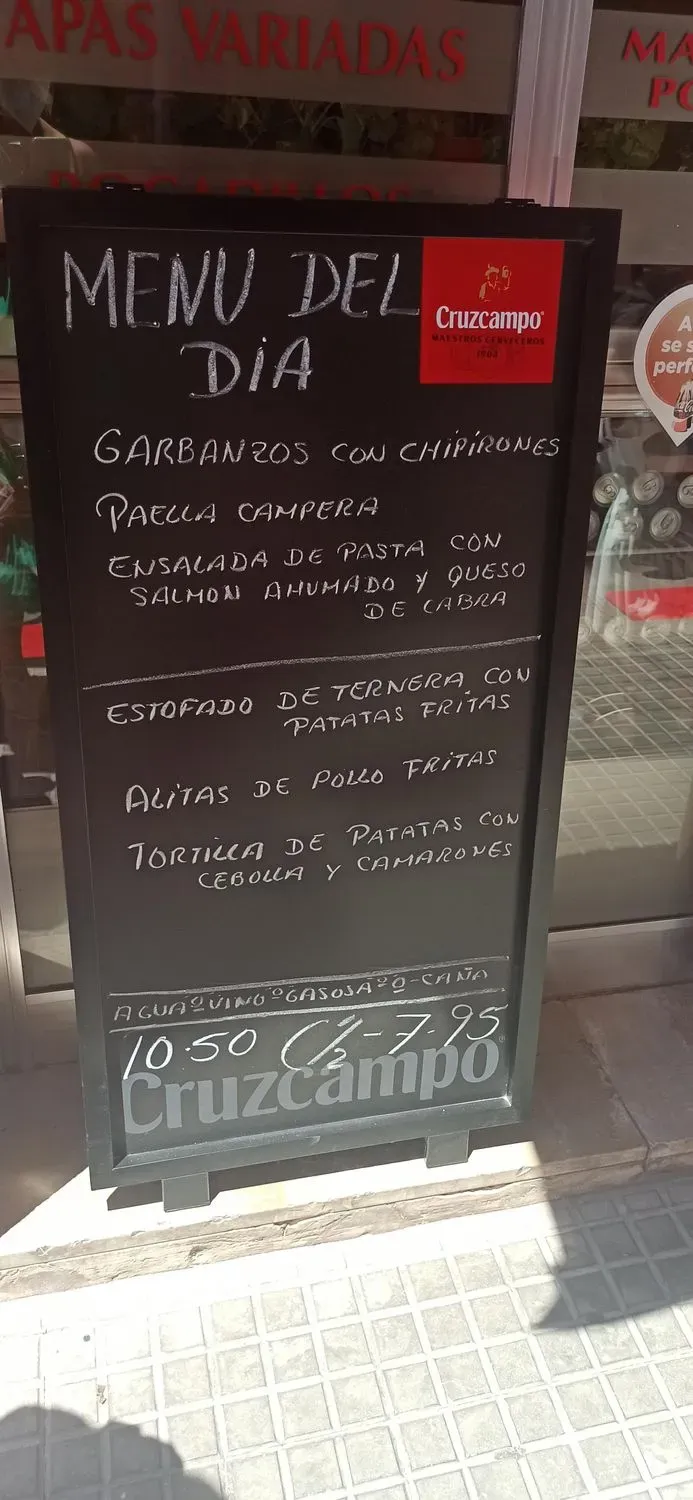 APAS VARIADAS
MA
PO
BOCADILLOS
MENU DEL
DiA
Cruzcampo
MAESTROS CERVECEROS
1904
A
se s
perfe
GARBANZOS CON CHIPIRONES
PAELLA CAMPERA
ENSALADA DE PASTA CON
SALMON AHUMADO Y QUESO
DE CABRA
ESTOFADO DE TERNERA CON
PATATAS FRITAS
ALITAS DE POLLO FRITAS
TORTILLA DE PATATAS CON
CEBOLLA Y CAMARONES
AGUA º VINO º GASOSA º O - CAÑA
10.50 C/½ - 7.95
Cruzcampo